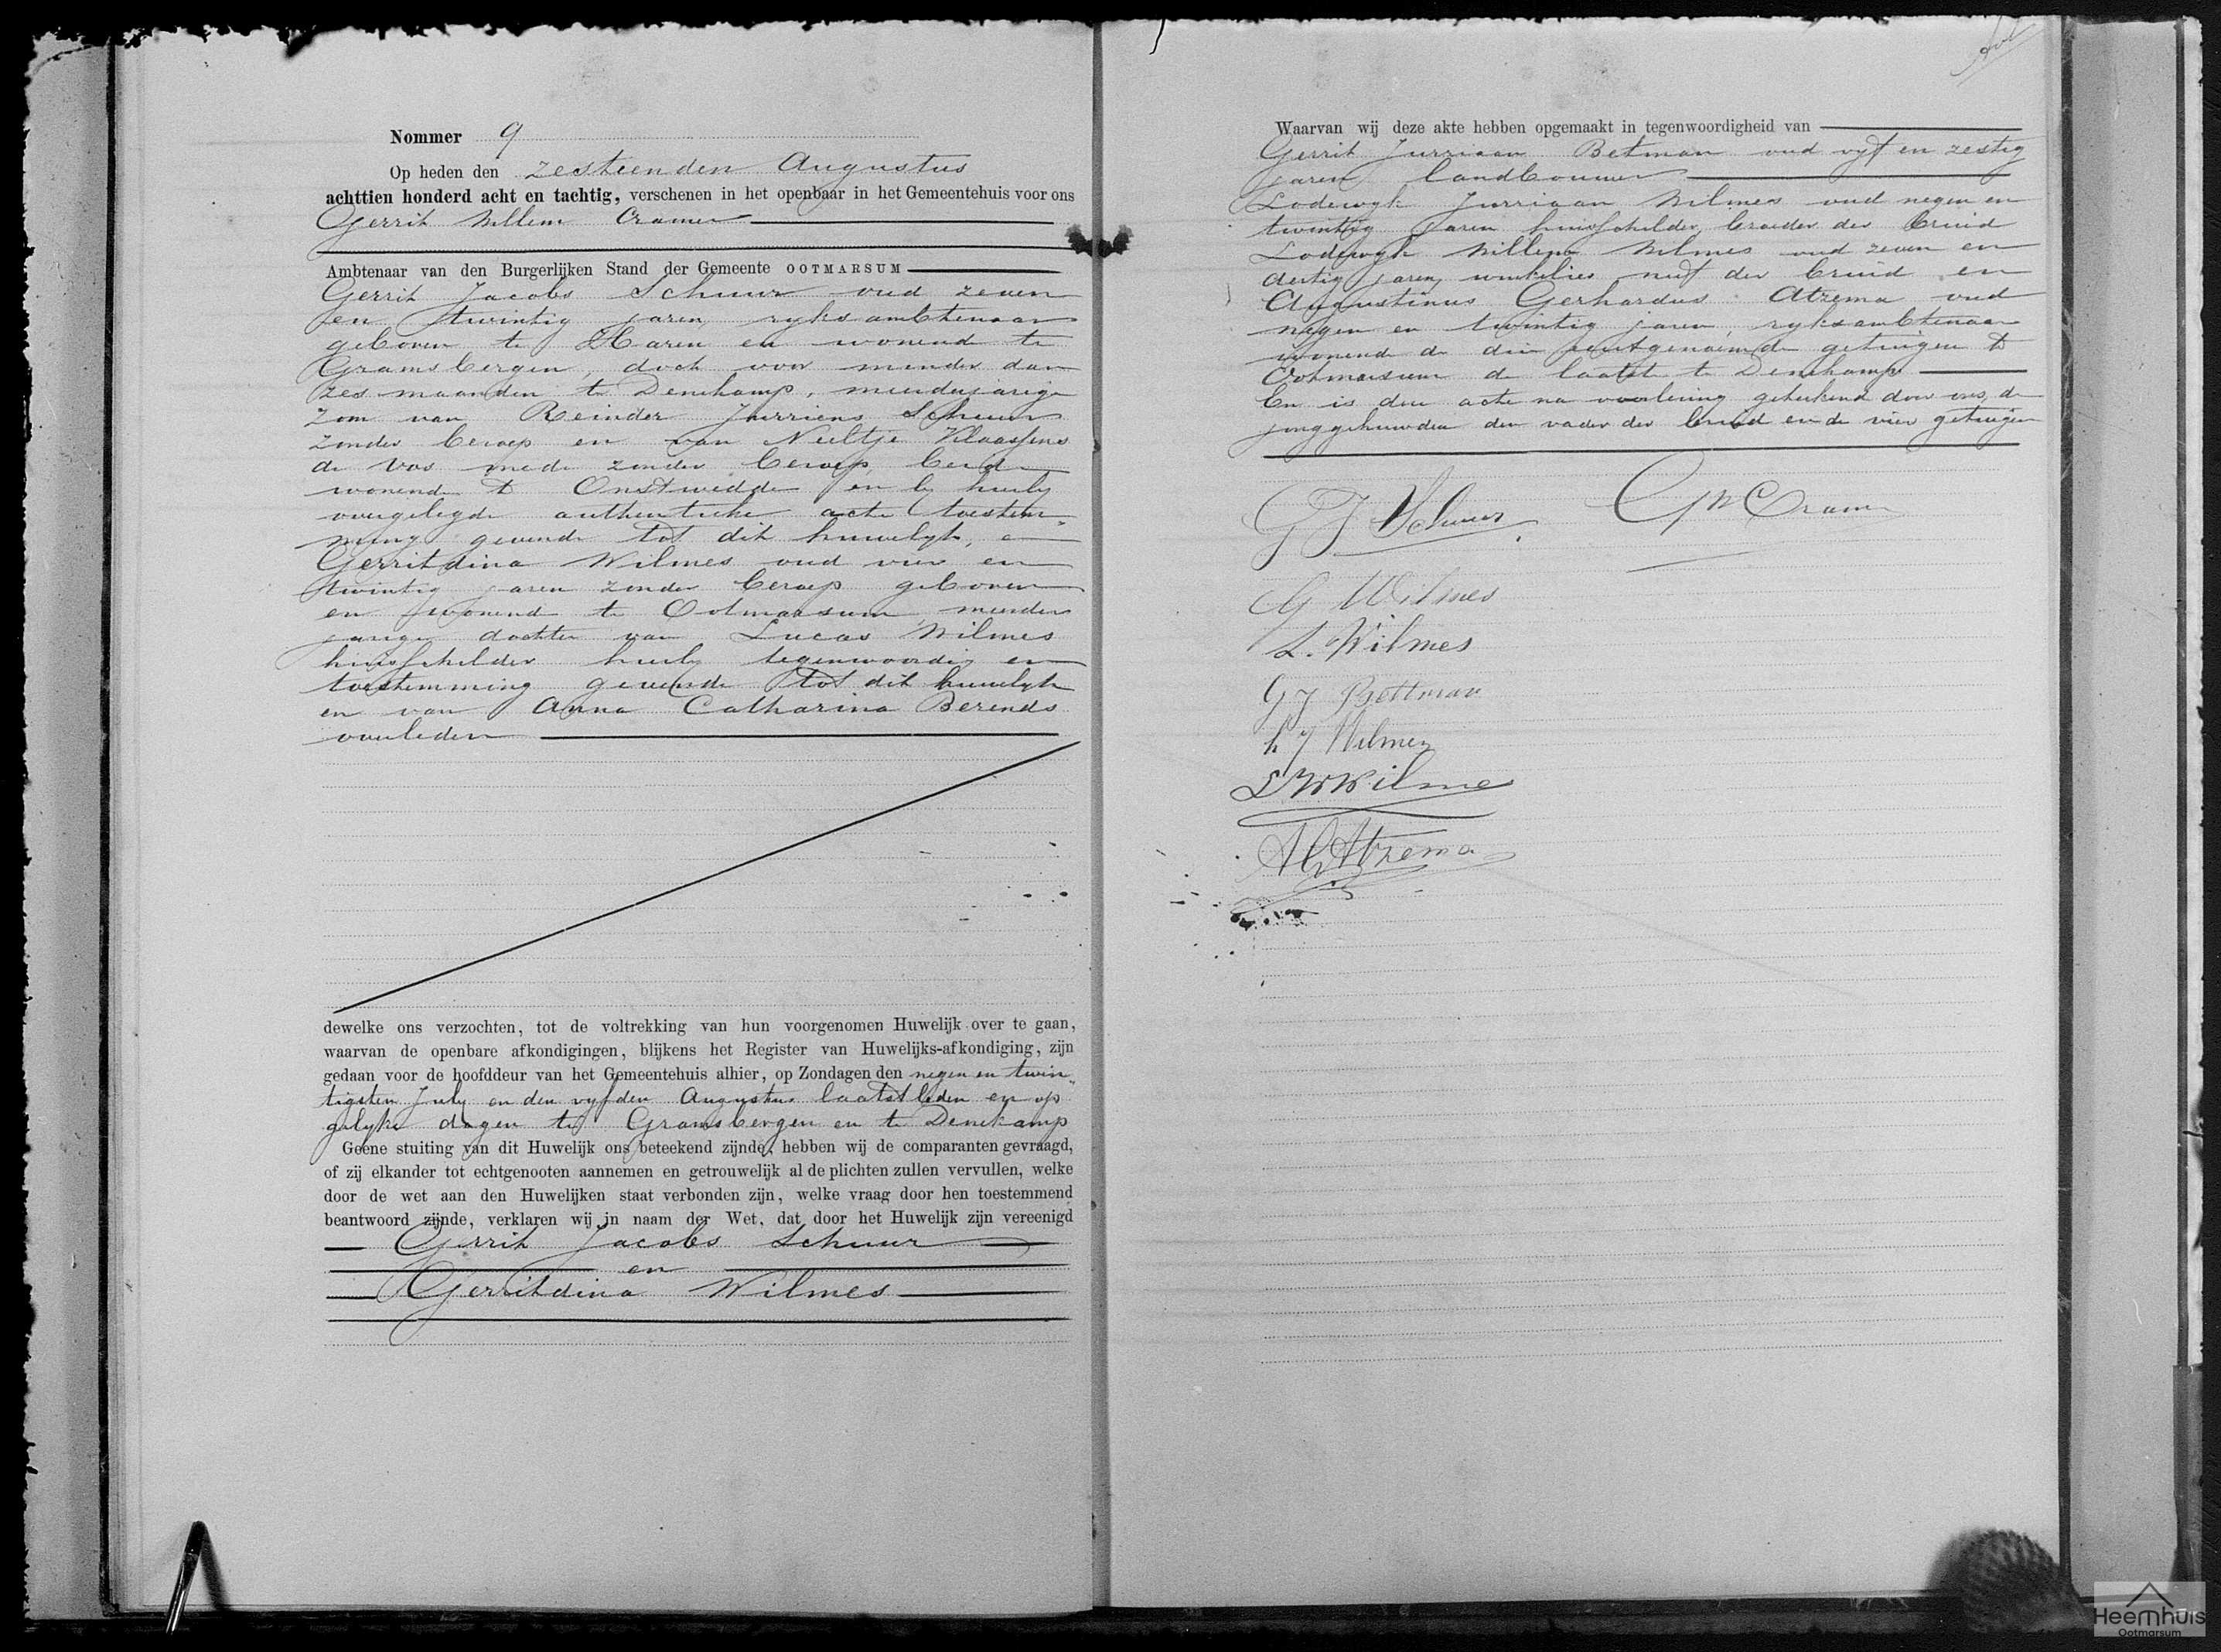 Nommer 9
Op heden den zestienden Augustus
achttien honderd acht en tachtig, verschenen in het openbaar in het Gemeentehuis voor ons
Gerrit Willem Cramer
Ambtenaar van den Burgerlijken Stand der Gemeente OOTMARSUM
Gerrit Jacobs Schuur oud zeven
en twintig jaren, ryksambtenaar
geboren te Haren en wonend te
Gramsbergen, doch voor minder dan
zes maanden te Denekamp, meerderjarige
zoon van Reinder Jurriens Schuur
zonder beroep en van Neeltje Klaassens
de Vos mede zonder beroep, beide
wonende te Onstwedde en by hierby
overgelegde authentieke acte toestem-
ming gevende tot dit huwelyk, en
Gerritdina Wilmes oud vier en
twintig jaren zonder beroep geboren
en wonend te Ootmarsum, meerder
jarige dochter van Lucas Wilmes
huisschilder hierby tegenwoordig en
toestemming gevende tot dit huwelyk
en van Anna Catharina Berends
overleden
dewelke ons verzochten, tot de voltrekking van hun voorgenomen Huwelijk over te gaan,
waarvan de openbare afkondigingen, blijkens het Register van Huwelijks-afkondiging, zijn
gedaan voor de hoofddeur van het Gemeentehuis alhier, op Zondagen den negen en twin-
tigsten July en den vyfden Augustus laatstleden en op
gelyke dagen te Gramsbergen en te Denekamp
Geene stuiting van dit Huwelijk ons beteekend zijnde, hebben wij de comparanten gevraagd,
of zij elkander tot echtgenooten aannemen en getrouwelijk al de plichten zullen vervullen, welke
door de wet aan den Huwelijken staat verbonden zijn, welke vraag door hen toestemmend
beantwoord zijnde, verklaren wij in naam der Wet, dat door het Huwelijk zijn vereenigd
Gerrit Jacobs Schuur
en
Gerritdina Wilmes
Waarvan wij deze akte hebben opgemaakt in tegenwoordigheid van
Gerrit Jurriaan Betman oud vyf en zestig
jaren landbouwer
Lodewyk Jurriaan Wilmes oud negen en
twintig jaren huisschilder, broeder der bruid
Lodewyk Willem Wilmes oud zeven en
dertig jaren, winkelier neef der bruid en
Augustinus Gerhardus Atzema oud
negen en twintig jaren, ryksambtenaar
wonende de drie eerstgenoemde getuigen te
Ootmarsum de laatste te Denekamp
En is deze acte na voorlezing geteekend door ons, de
jonggehuwden den vader der bruid en de vier getuigen
G J Schuur
GW Cramer
G Wilmes
L. Wilmes
G J Bettman
L J Wilmes
L W Wilmes
AG Atzema
Heemhuis
Ootmarsum